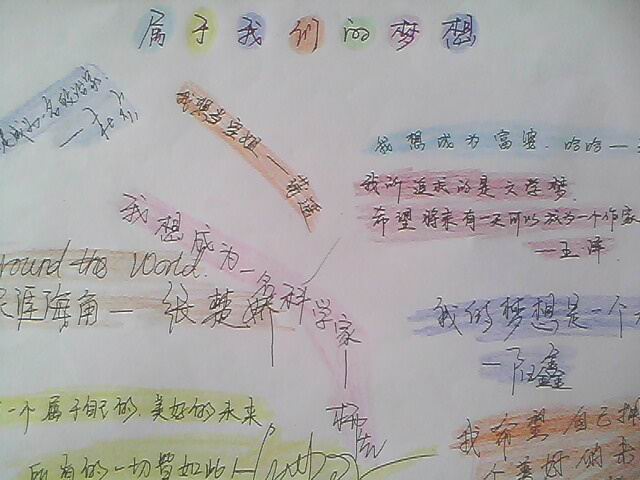 属于我们的梦想
我想当空姐
我想成为富婆.哈哈一
我所追求的是文学梦
希望将来有一天可以成为一个作家
—王泽
我想成为一名科学家—
round the world.
天涯海角—张楚
我的梦想是一个
—阳鑫
一个属于自己的.美好的未来
所有的一切譬如此
我希望自己拥
个美好的未